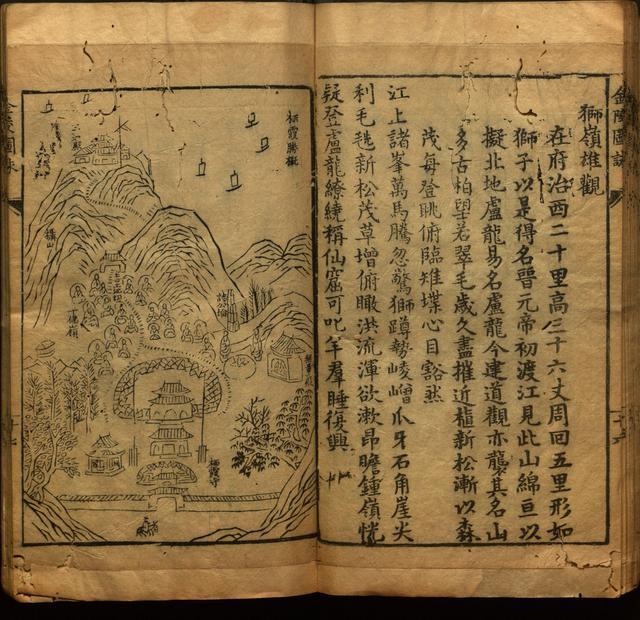 金陵圖詠
獅嶺雄觀
在府治西二十里高三十六丈周回五里形如
獅子以是得名晉元帝初渡江見此山綿亘以
擬北地盧龍易名盧龍今建道觀亦襲其名山
多古柏望若翠毛歲久盡摧近植新松漸以森
茂每登眺俯臨雉堞心目豁然
江上諸峯萬馬騰忽驚獅蹲勢崚嶒爪牙石角崖尖
利毛毨新松茂草增俯瞰洪流渾欲漱昂瞻鍾嶺恍
疑登盧龍繚繞稱仙窟可叱羊羣睡復興
栖霞勝概
攝山
栖霞寺